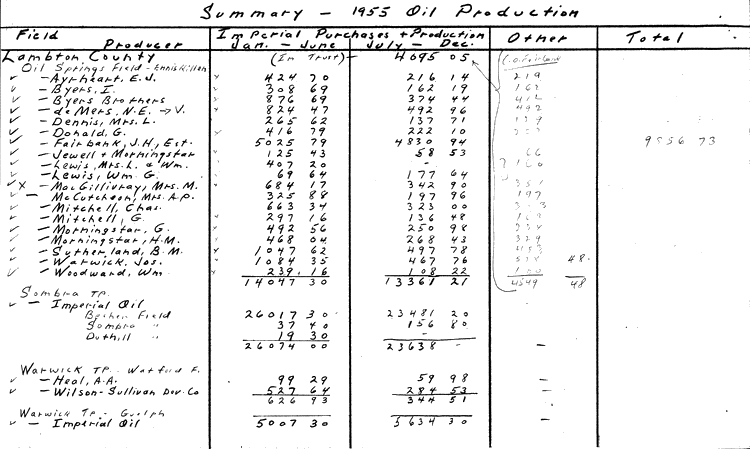 Summary - 1955 Oil Production
Field Producer Imperial Purchases + Production Jan. - June July - Dec. Other Total
Lambton County (In Trust) - 4095 05
Oil Springs Field - Enniskillen
- Ayrheart, E.J. 424 70 216 14 219
- Byers, I. 308 69 162 19 162
- Byers Brothers 876 69 374 44 412
- de Mers, N.E. → V. 824 47 492 96 492
- Dennis, Mrs. L. 265 62 137 71
- Donald, G. 416 79 222 10
- Fairbank, J.H., Est. 5025 79 4830 94 9856 73
- Jewell + Morningstar 125 43 58 53 66
- Lewis, Mrs. L. & Wm. 407 20 -
- Lewis, Wm. G. 69 64 177 64
x - MacGillivray, Mrs. M. 684 17 342 90
- McCutcheon, Mrs. A.P. 325 88 197 96 197
- Mitchell, Chas. 663 34 323 00
- Mitchell, G. 297 16 136 48
- Morningstar, G. 492 56 250 98
- Morningstar, H.M. 468 04 268 43 329
- Sutherland, B.M. 1047 62 497 78
- Warwick, Jos. 1084 35 467 76 48
- Woodward, Wm. 239.16 108 22
14047 30 13361 21 4549 48
Sombra TP.
- Imperial Oil
Becher Field 26017 30 23481 20
Sombra " 37 40 156 80
Duthill " 19 30 -
26074 00 23638 - -
Warwick TP. - Watford F.
- Heal, A.A. 99 29 59 98 -
- Wilson-Sullivan Dev. Co 527 64 284 53 -
626 93 344 51
Warwick TP. - Guelph
- Imperial Oil 5007 30 5634 30 -